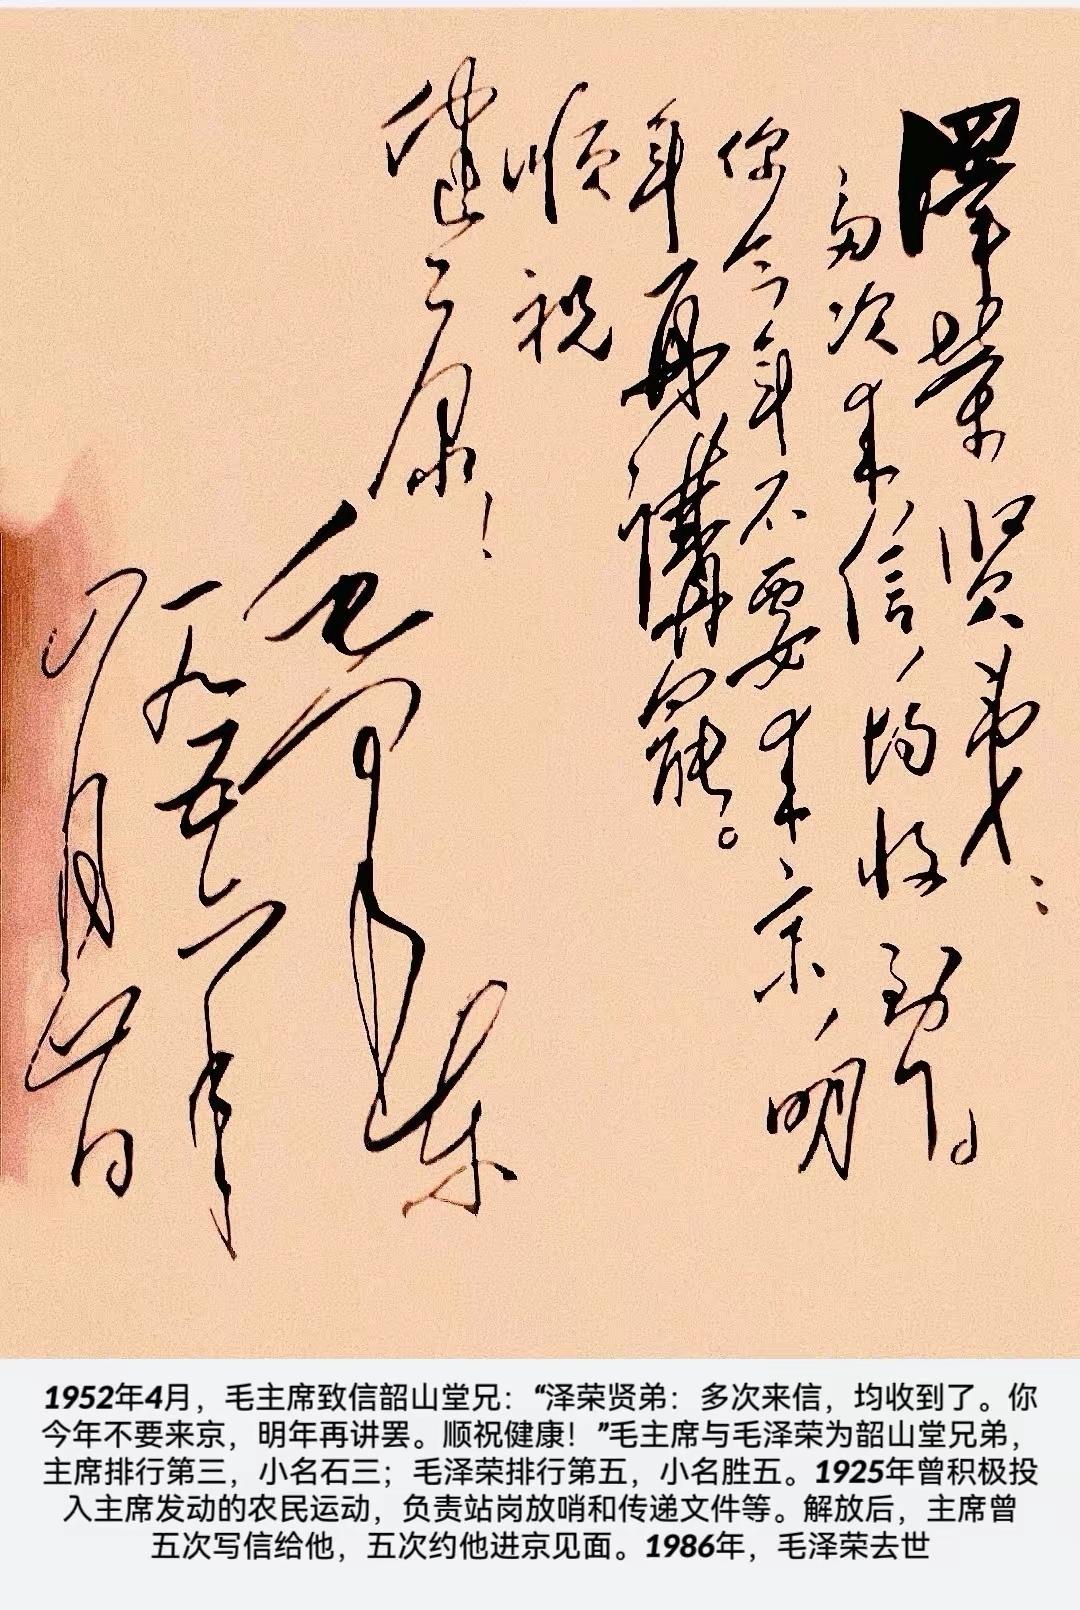 澤荣贤弟：
多次来信，均收到了。
你今年不要来京，明
年再講罢。
顺祝
健康！
毛泽东
一九五二年
四月
1952年4月，毛主席致信韶山堂兄：“泽荣贤弟：多次来信，均收到了。你
今年不要来京，明年再讲罢。顺祝健康！”毛主席与毛泽荣为韶山堂兄弟，
主席排行第三，小名石三；毛泽荣排行第五，小名胜五。1925年曾积极投
入主席发动的农民运动，负责站岗放哨和传递文件等。解放后，主席曾
五次写信给他，五次约他进京见面。1986年，毛泽荣去世